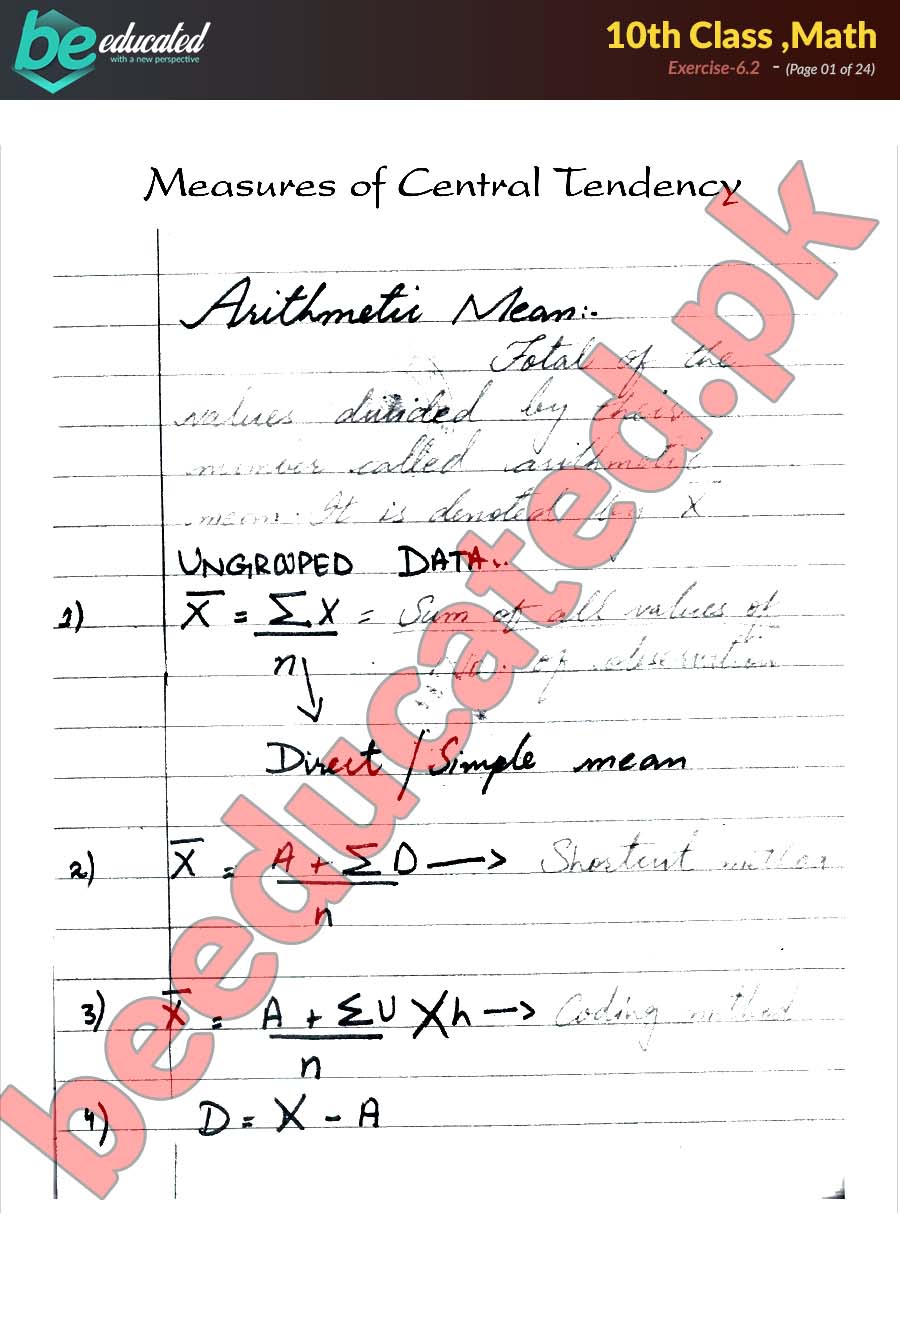 be educated
with a new perspective
10th Class ,Math
Exercise-6.2 - (Page 01 of 24)
Measures of Central Tendency
Arithmetic Mean:-
Total of the
values divided by their
number called arithmetic
mean. It is denoted by X̅
UNGROUPED DATA..
1) X̅ = ΣX = Sum of all values of
n No. of observation
Direct / Simple mean
2) X̅ = A + ΣD → Shortcut method
n
3) X̅ = A + ΣU X h → Coding method
n
4) D = X - A
beeducated.pk